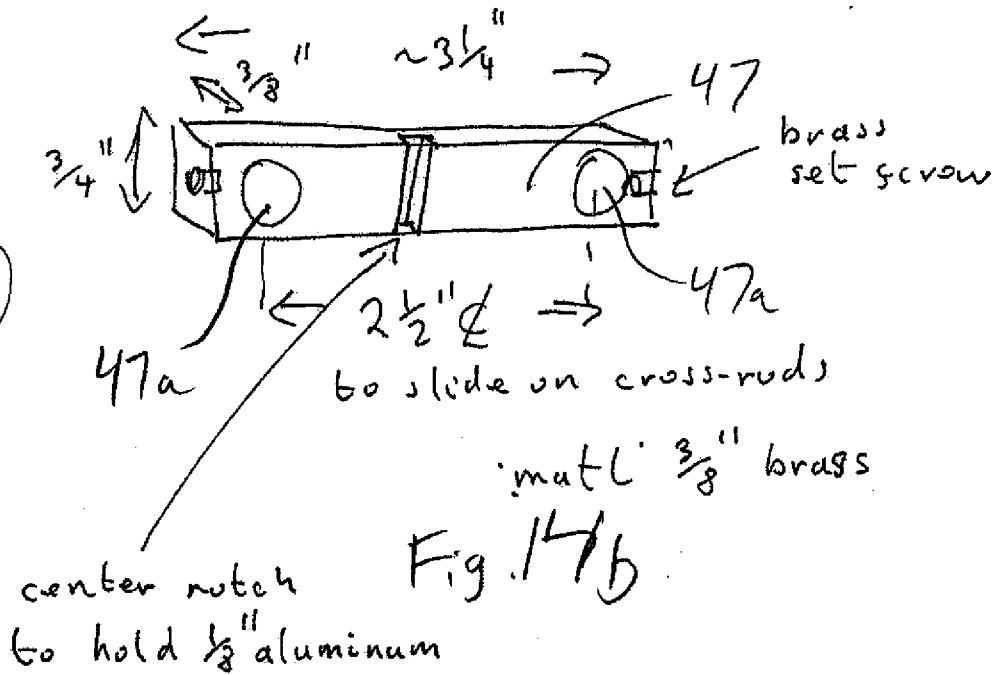 3/8" ~3 1/4"
47
3/4"
brass
set screw
2 1/2" ℄
47a
47a
to slide on cross-rods
mat'l 3/8" brass
Fig. 14b
center notch
to hold 1/8" aluminum